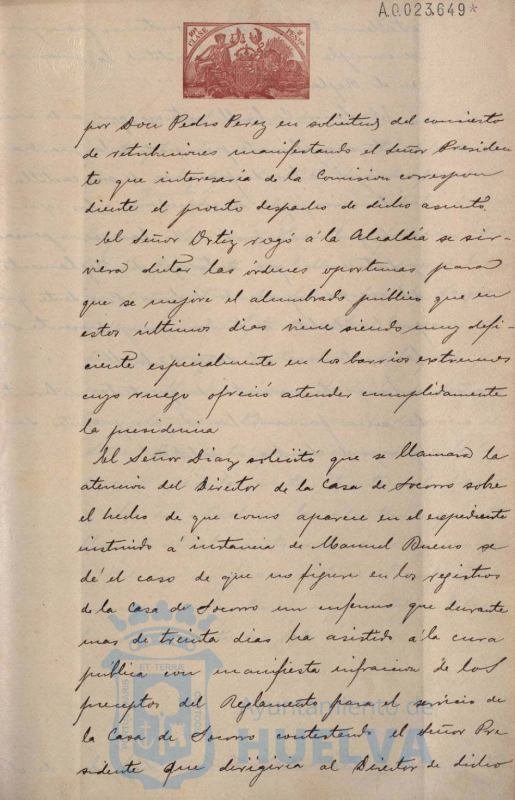 A.0.023.649*
10ª CLASE
por Don Pedro Perez en solicitud del concierto
de retribuciones manifestando el Señor Presiden
te que interesaria de la Comision correspon
diente el pronto despacho de dicho asunto.
El Señor Ortiz rogó á la Alcaldia se sir-
viera dictar las órdenes oportunas para
que se mejore el alumbrado público que en
estos últimos dias viene siendo muy defi-
ciente especialmente en los barrios extremos
cuyo ruego ofreció atender cumplidamente
la presidencia
El Señor Diaz solicitó que se llamara la
atencion del Director de la Casa de Socorro sobre
el hecho de que como aparece en el expediente
instruido á instancia de Manuel Bueno se
dé el caso de que no figure en los registros
de la Casa de Socorro un enfermo que durante
mas de treinta dias ha asistido á la cura
pública con manifiesta infraccion de los
preceptos del Reglamento para el servicio de
la Casa de Socorro contestando el Señor Pre
sidente que dirigiria al Director de dicho
Ayuntamiento de
HUELVA